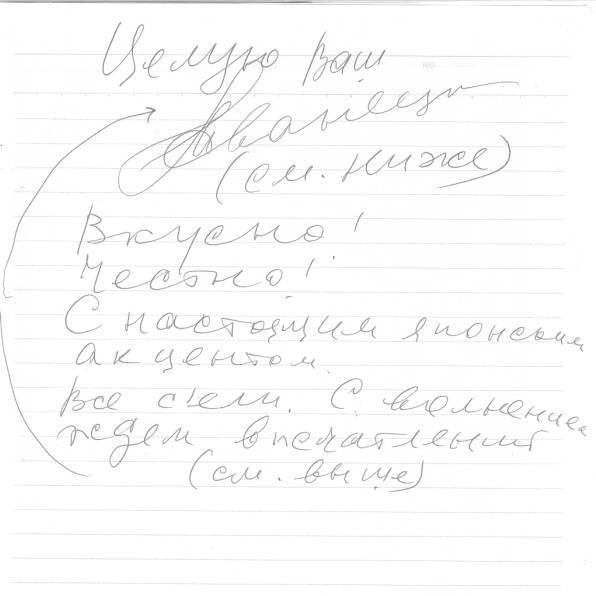 Целую Ваш
(см. ниже)
Вкусно!
Честно!
С настоящим японским
акцентом.
Все съели. С волнением
ждем впечатлений
(см. выше)